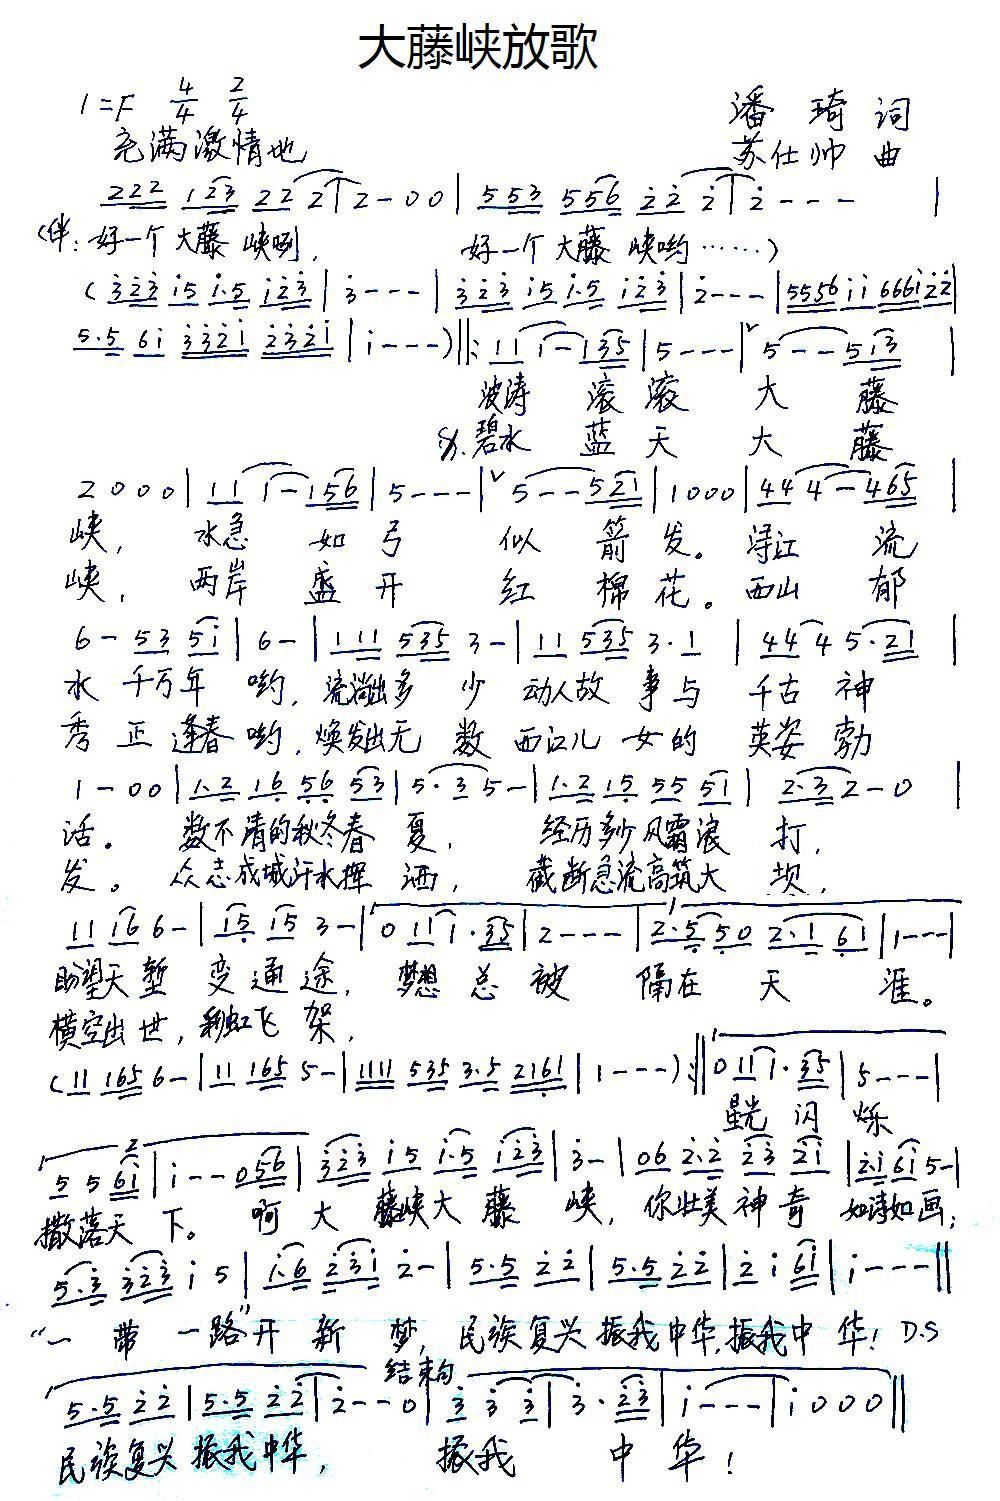 大藤峡放歌
1=F 4/4 2/4
潘琦 词
充满激情地
苏仕帅 曲
222 123 22 2 | 2-00 | 553 556 22 2 | 2--- |
(伴:好一个大藤峡咧, 好一个大藤峡哟……)
(323 i5 i·5 i23 | 3--- | 323 i5 i·5 i23 | 2--- | 5556 ii 666i22 |
5·5 6i 332i 232i | i---)‖: 11 1-135 | 5--- | 5--513 |
波涛 滚滚 大 藤
碧水 蓝天 大 藤
2000 | 11 1-156 | 5--- | 5--521 | 1000 | 44 4-465 |
峡, 水急 如弓 似箭发。浔江 流
峡, 两岸 盛开 红棉花。西山 郁
6- 53 5i | 6- | 111 535 3- | 11 535 3·1 | 44 4 5·21 |
水 千万年 哟,流淌出多少 动人故事与 千古神
秀 正逢春 哟,焕发出无数 西江儿女的 英姿勃
1-00 | 1·2 16 56 53 | 5·3 5- | 1·2 15 55 51 | 2·3 2-0 |
话。 数不清的秋冬春夏, 经历多少风霜浪打,
发。 众志成城汗水挥洒, 截断急流高筑大坝,
11 16 6- | 15 15 3- | 0 11 1·35 | 2--- | 2·5 50 2·1 61 | 1--- |
盼望天堑 变通途, 梦想总被 隔在天涯。
横空出世,彩虹飞架,
(11 165 6- | 11 165 5- | 1111 535 3·5 2161 | 1---):‖ 0 11 1·35 | 5--- |
星光闪烁
5 5 6i | i--056 | 323 i5 i·5 i23 | 3- | 06 2·2 23 2i | 2·i 6i 5- |
撒落天下。 啊 大藤峡大藤峡, 你壮美神奇 如诗如画;
5·3 323 i 5 | i·6 23i 2- | 5·5 22 | 5·5 22 | 2 i 6i | i---‖
“一带一路”开新梦, 民族复兴 振我中华,振我中华! D.S
结束句
5·5 22 | 5·5 22 | 2--0 | 3 3 3 | 3·23 | i--- | i000‖
民族复兴 振我中华, 振我 中华!